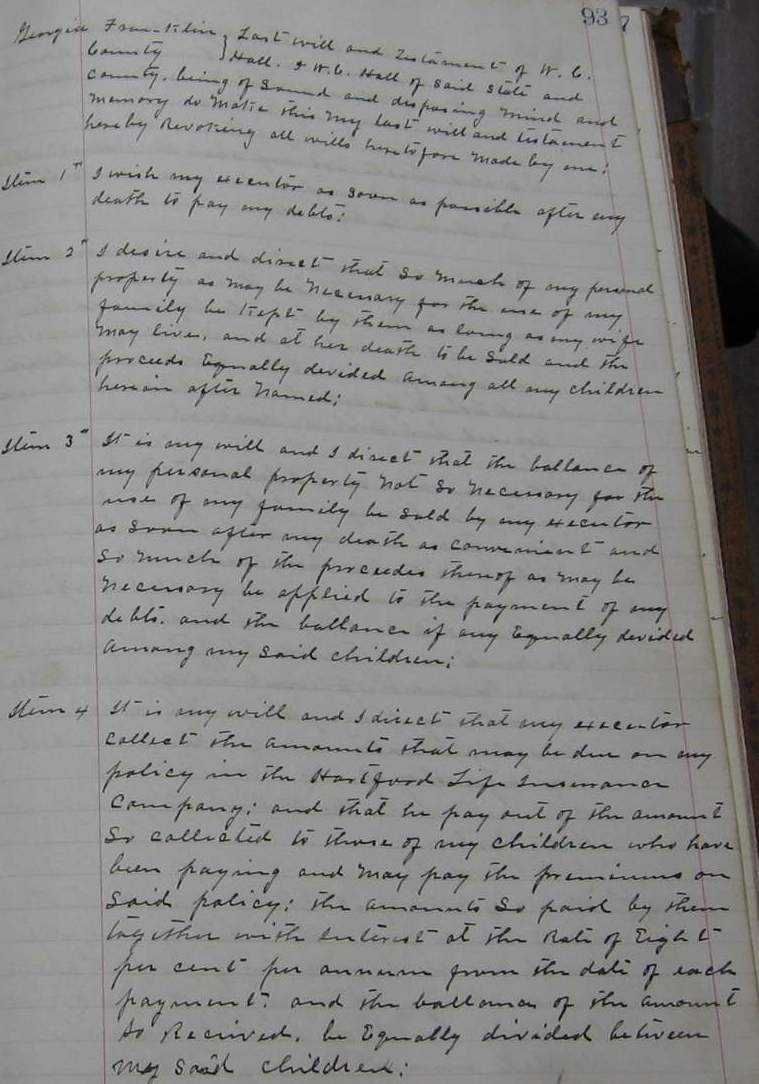 93 7
Georgia Franklin } Last will and Testament of W. C.
County } Hall. I W. C. Hall of said State and
County, being of Sound and disposing mind and
memory do make this my last will and testament
hereby Revoking all wills heretofore made by me;
Item 1st I wish my executor as soon as possible after my
death to pay my debts;
Item 2nd I desire and direct that So much of my personal
property as may be Necessary for the use of my
family be Kept by them as long as my wife
may live, and at her death to be Sold and the
proceeds Equally devided among all my children
herein after Named;
Item 3rd It is my will and I direct that the ballance of
my personal property Not So Necessary for the
use of my family be Sold by my executor
as soon after my death as convenient and
So much of the proceedes thereof as may be
Necessary be applied to the payment of my
debts. and the ballance if any Equally devided
among my Said children;
Item 4 It is my will and I direct that my executor
collect the amounts that may be due on my
policy in the Hartford Life Insurance
Company; and that he pay out of the amount
So collected to those of my children who have
been paying and may pay the premiums on
Said policy; the amounts So paid by them
together with interest at the Rate of Eight
per cent per annum from the date of each
payment. and the ballance of the amount
So Received, be Equally divided between
my said children;